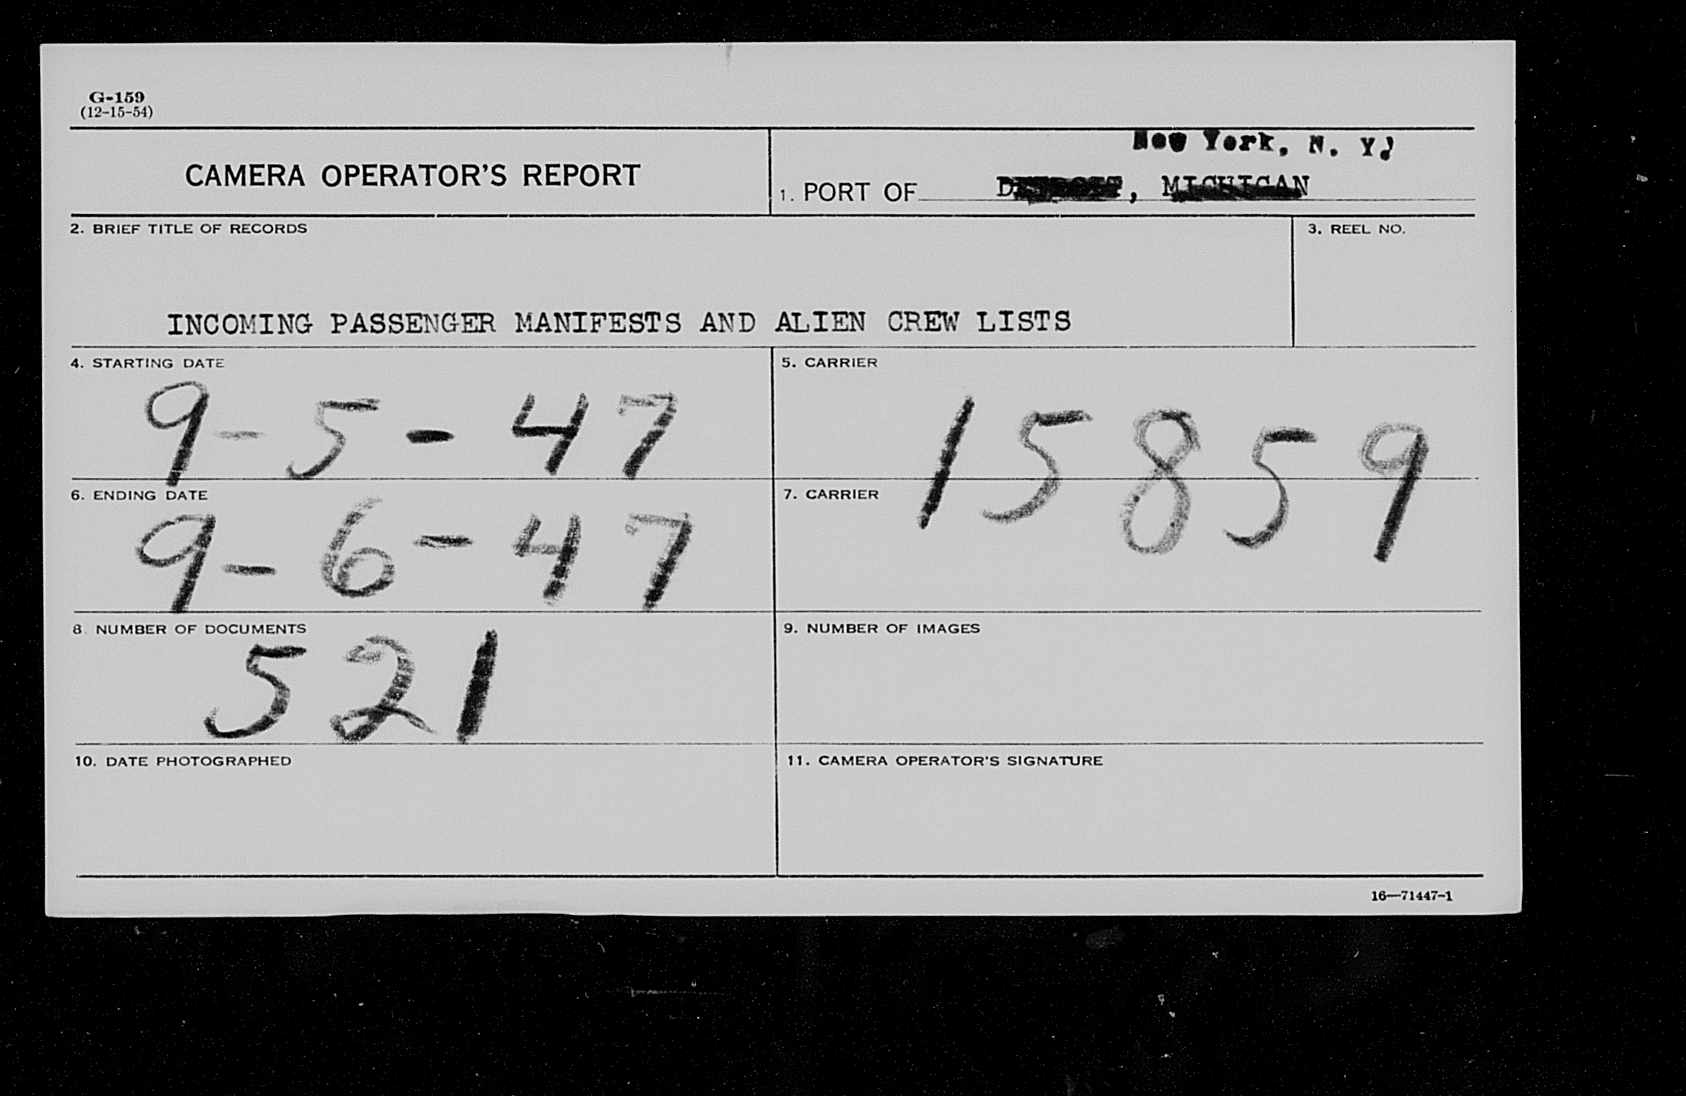 G-159
(12-15-54)
CAMERA OPERATOR'S REPORT
New York, N. Y.
1. PORT OF DETROIT, MICHIGAN
2. BRIEF TITLE OF RECORDS
3. REEL NO.
INCOMING PASSENGER MANIFESTS AND ALIEN CREW LISTS
4. STARTING DATE
9-5-47
5. CARRIER
15859
6. ENDING DATE
9-6-47
7. CARRIER
8. NUMBER OF DOCUMENTS
521
9. NUMBER OF IMAGES
10. DATE PHOTOGRAPHED
11. CAMERA OPERATOR'S SIGNATURE
16—71447-1